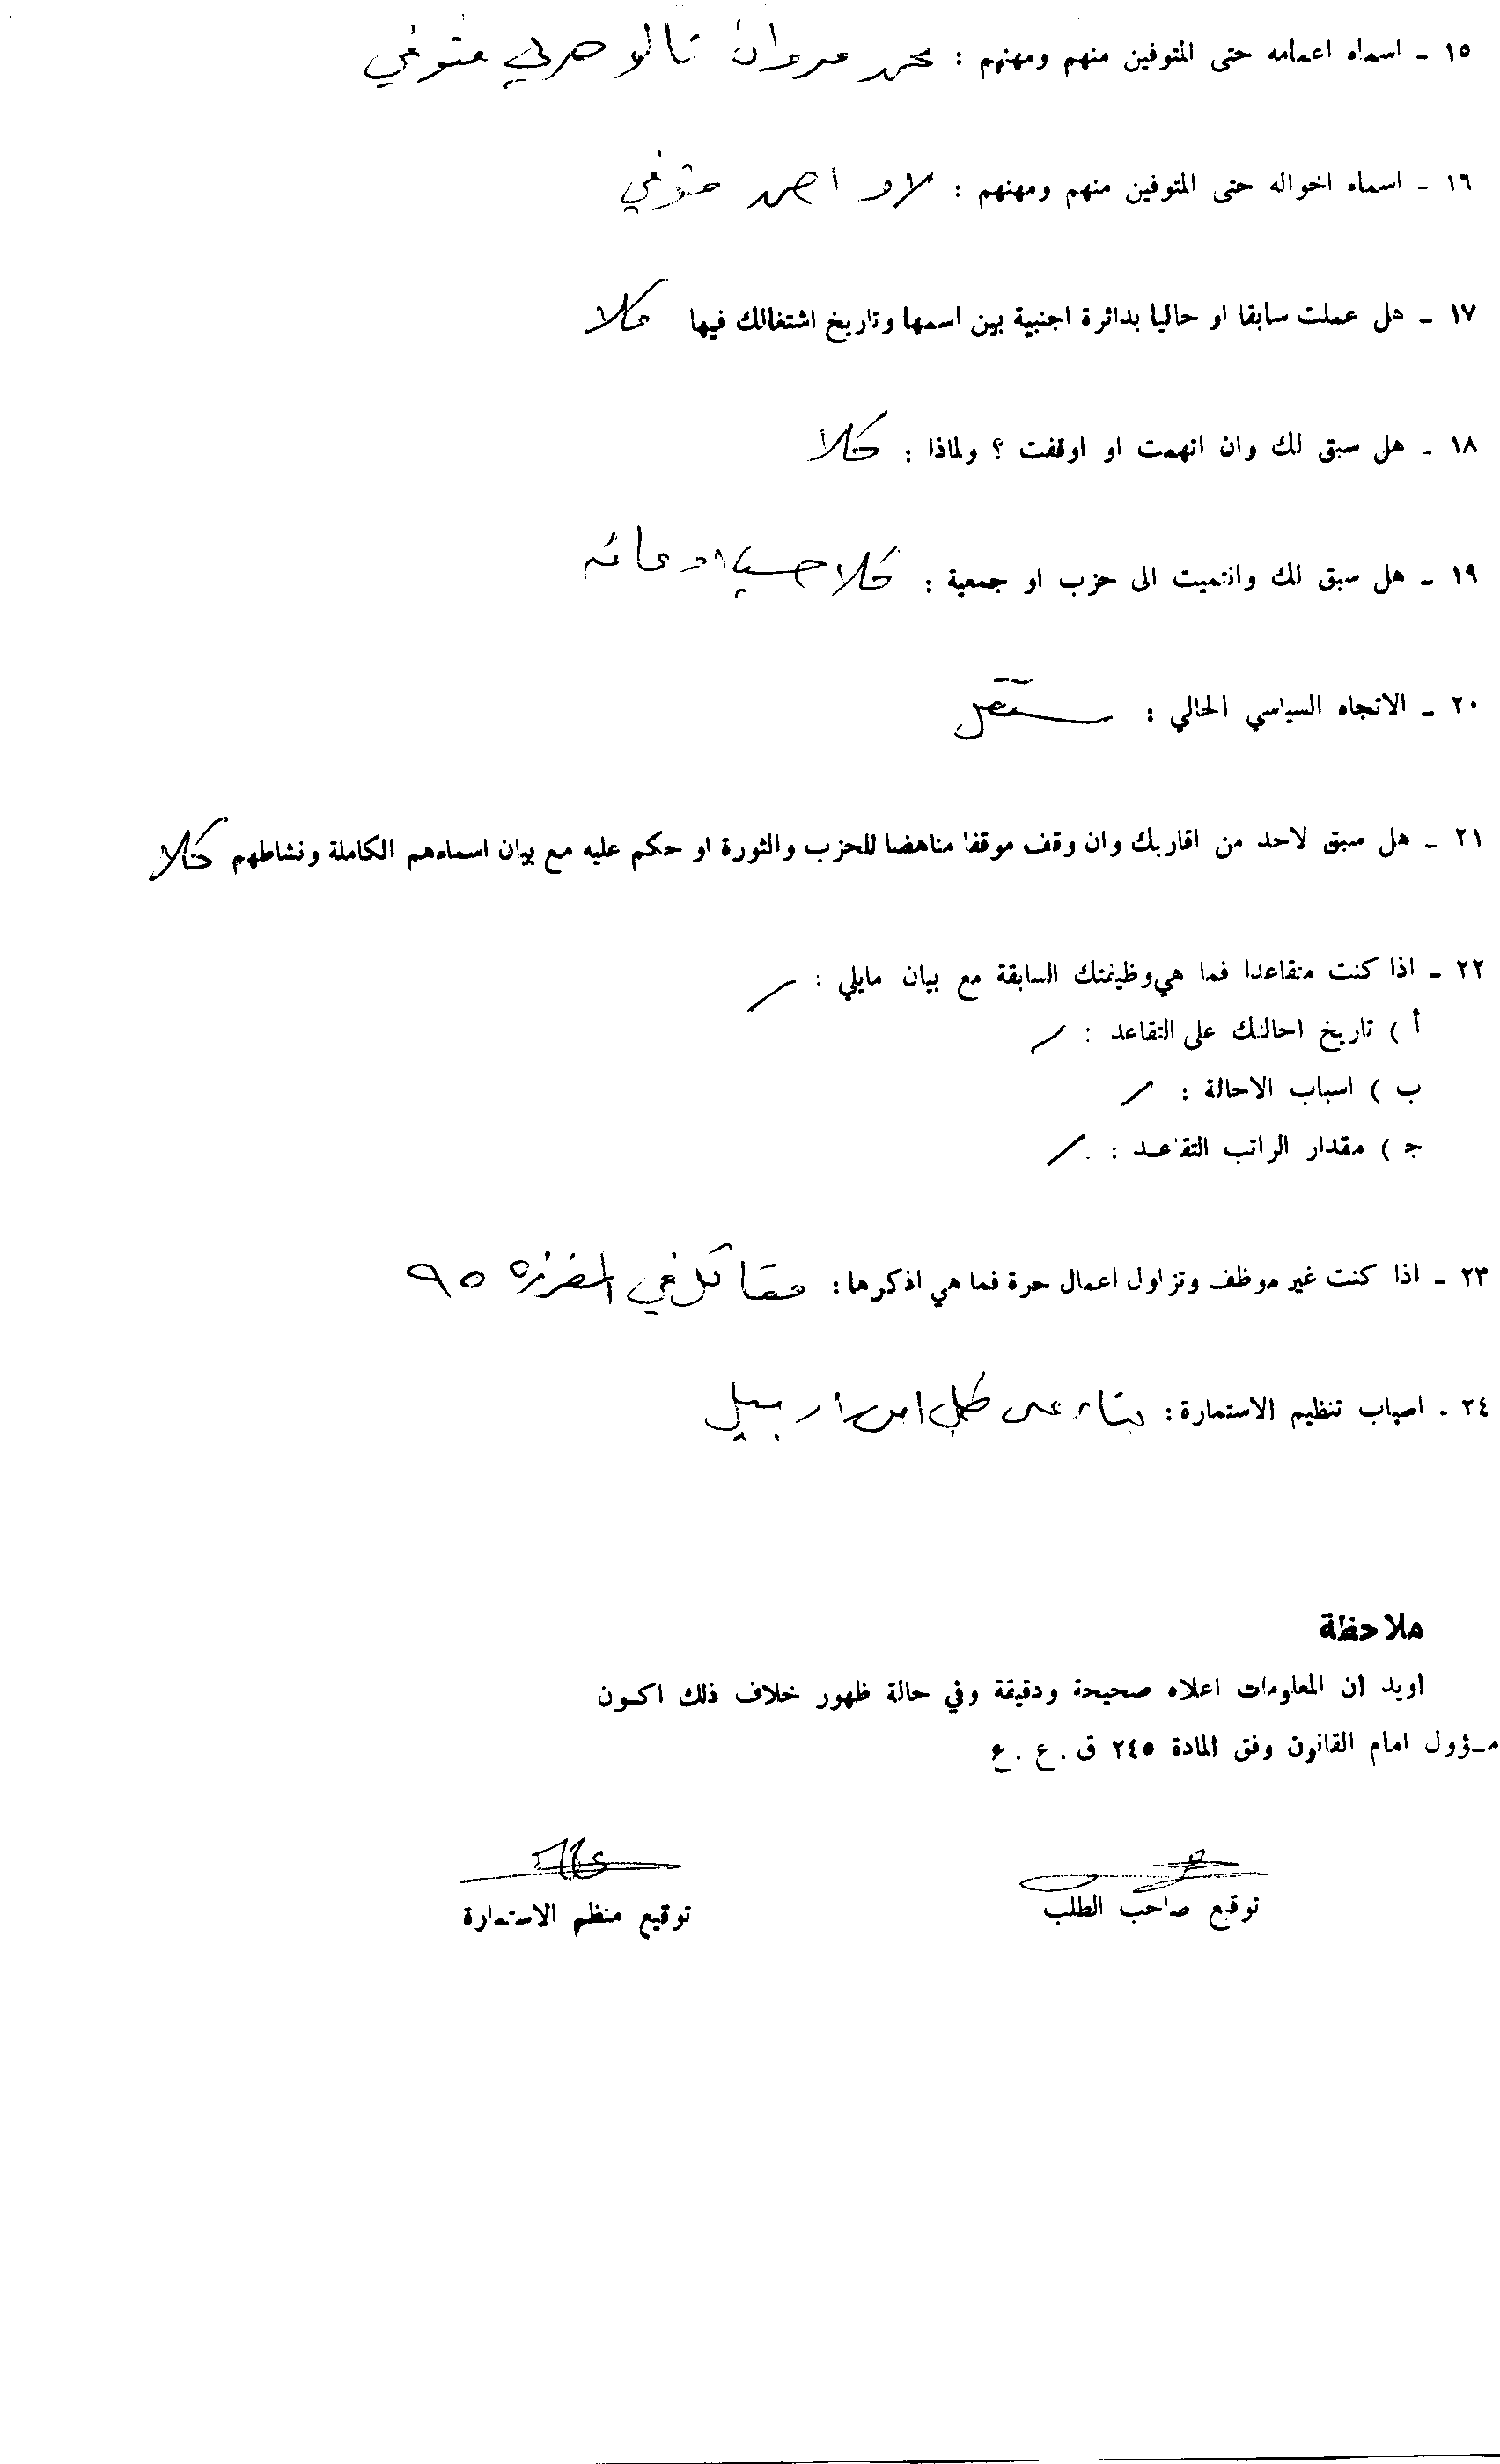 ١٥ ـ اسماء اعمامه حتى المتوفين منهم ومهنهم : محمد مروان متوفي
١٦ ـ اسماء اخواله حتى المتوفين منهم ومهنهم : احمد متوفي
١٧ ـ هل عملت سابقا او حاليا بدائرة اجنبية بين اسمها وتاريخ اشتغالك فيها كلا
١٨ ـ هل سبق لك وان اتهمت او اوقفت ؟ ولماذا : كلا
١٩ ـ هل سبق لك وانتميت الى حزب او جمعية : كلا حسب ادعائه
٢٠ ـ الاتجاه السياسي الحالي : مستقل
٢١ ـ هل سبق لاحد من اقاربك وان وقف موقفا مناهضا للحزب والثورة او حكم عليه مع بيان اسماءهم الكاملة ونشاطهم كلا
٢٢ ـ اذا كنت متقاعدا فما هي وظيفتك السابقة مع بيان مايلي : /
أ ) تاريخ احالتك على التقاعد : /
ب ) اسباب الاحالة : /
ج ) مقدار الراتب التقاعد : /
٢٣ ـ اذا كنت غير موظف وتزاول اعمال حرة فما هي اذكرها : مقاتل في المفرزة ٩٥
٢٤ ـ اسباب تنظيم الاستمارة : بناء على طلب امن اربيل
ملاحظة
اويد ان المعلومات اعلاه صحيحة ودقيقة وفي حالة ظهور خلاف ذلك اكون
مسؤول امام القانون وفق المادة ٢٤٥ ق . ع . ع
توقيع صاحب الطلب
توقيع منظم الاستمارة